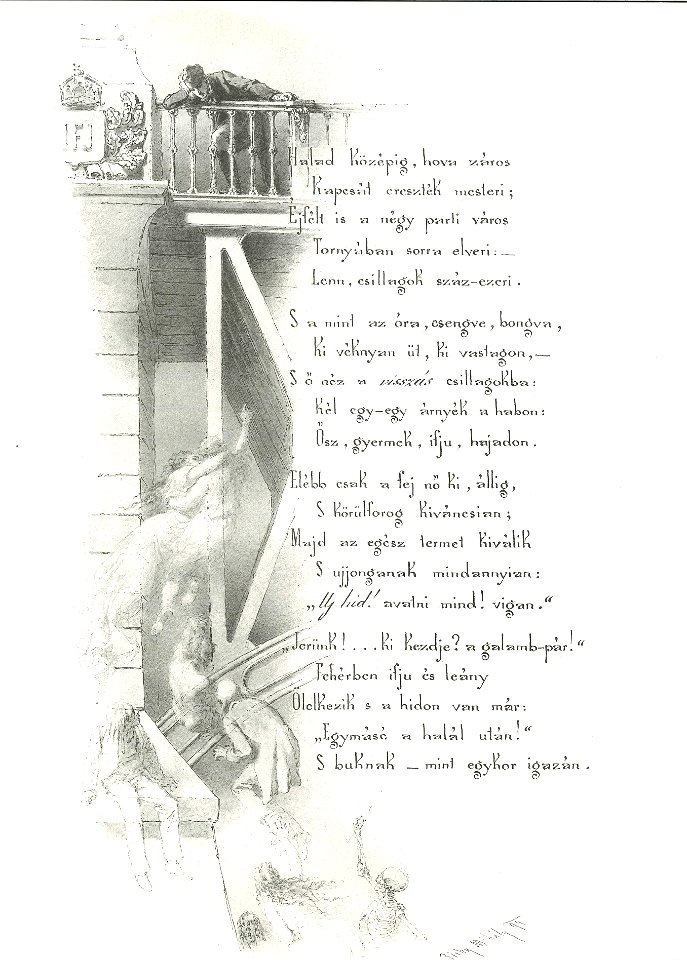 Halad középig, hova záros
Kapcsát ereszték mesteri;
Éjfélt is a négy parti város
Tornyában sorra elveri: —
Lenn, csillagok száz-ezeri.
S a mint az óra, csengve, bongva,
Ki véknyan üt, ki vastagon, —
S ő néz a visszás csillagokba:
Kél egy-egy árnyék a habon:
Ősz, gyermek, ifju, hajadon.
Elébb csak a fej nő ki, állig,
S körülforog kiváncsian;
Majd az egész termet kiválik
S ujjonganak mindannyian:
„Uj hid! avatni mind! vigan.“
„Jerünk! ... ki kezdje? a galamb-pár!“
Fehérben ifju és leány
Ölelkezik s a hidon van már:
„Egymásé a halál után!“
S buknak — mint egykor igazán.